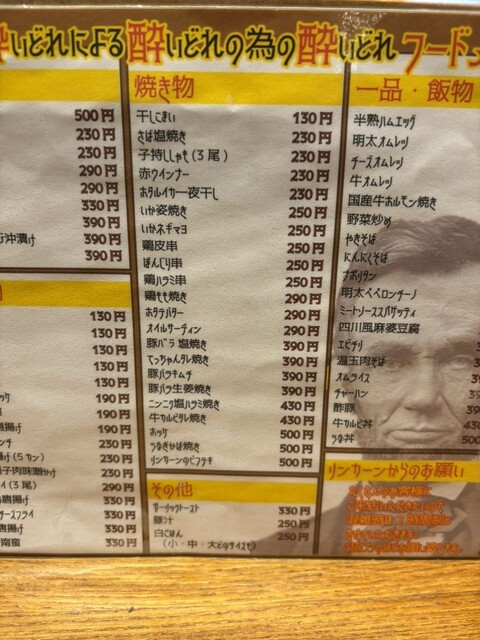 酔いどれによる酔いどれの為の酔いどれフードメ
500円
230円
230円
290円
290円
330円
390円
沖漬け 390円
390円
130円
130円
130円
130円
190円
190円
唐揚げ 190円
ンチ 230円
揚げ(5カン) 230円
230円
イ(3尾) 290円
唐揚げ 330円
チーズフライ 330円
南蛮 330円
焼き物
干しこまい 130円
さば塩焼き 230円
子持ししゃも(3尾) 230円
赤ウインナー 230円
ホタルイカ一夜干し 230円
いか姿焼き 250円
いかネギマヨ 250円
鶏皮串 250円
ぼんじり串 250円
鶏ハラミ串 250円
鶏もも焼き 290円
ホタテバター 290円
オイルサーディン 290円
豚バラ塩焼き 390円
てっちゃんタレ焼き 390円
豚バラキムチ 390円
豚バラ生姜焼き 390円
ニンニク塩ハラミ焼き 430円
牛カルビタレ焼き 430円
ホッケ 500円
うなぎかば焼き 500円
リンカーンのビフテキ 500円
その他
ガーリックトースト 330円
豚汁 250円
白ごはん 250円
(小・中・大どのサイズも)
一品・飯物
半熟ハムエッグ
明太オムレツ
チーズオムレツ
牛オムレツ
国産牛ホルモン焼き
野菜炒め
やきそば
にんにくそば
ナポリタン
明太ペペロンチーノ
ミートソーススパゲッティ
四川風麻婆豆腐
エビチリ
温玉肉そば
オムライス
チャーハン
酢豚
牛カルビ丼
うな丼
リンカーンからのお願い